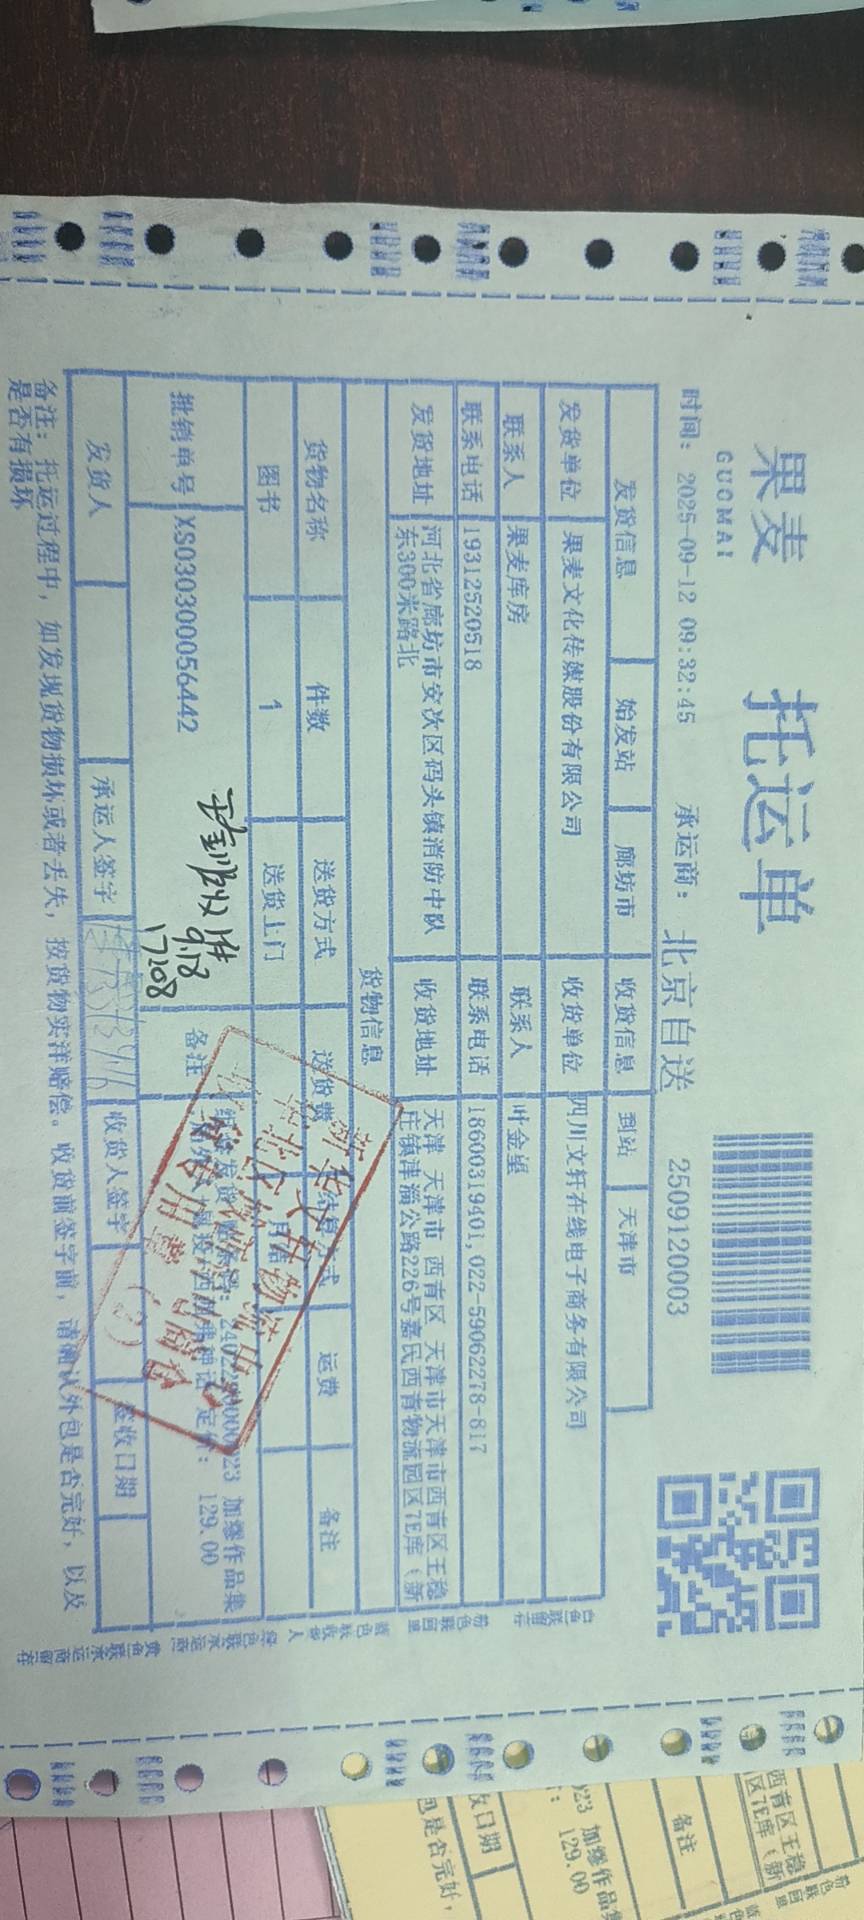 果麦
GUOMAI
托运单
时间: 2025-09-12 09:32:45
承运商: 北京自送
2509120003
发货信息 始发站 廊坊市 收货信息 到站 天津市
发货单位 果麦文化传媒股份有限公司 收货单位 四川文轩在线电子商务有限公司
联系人 果麦库房 联系人 叶金星
联系电话 19312520518 联系电话 18600319401,022-59062278-817
发货地址 河北省廊坊市安次区码头镇消防中队
东300米路北
收货地址 天津 天津市 西青区 天津市天津市西青区王稳
庄镇津淄公路226号嘉民西青物流园区7E库(新
货物信息
货物名称 件数 送货方式 送货费 结算方式 运费 备注
图书 1 送货上门 月结
批销单号 XS030300056442 备注
加缪作品集
定价:
129.00
9.18
17208
发货人 承运人签字 收货人签字 签收日期
备注: 托运过程中, 如发现货物损坏或者丢失, 按货物实洋赔偿。收货前签字前, 请确认外包是否完好, 以及
是否有损坏
新华文轩物流
专用章
白色联留存
粉色联回单
绿色联承运商
黄色联承运商留存
西青区王稳
区7E库(新
备注
23 加缪作品集
129.00
收日期
包是否完好,